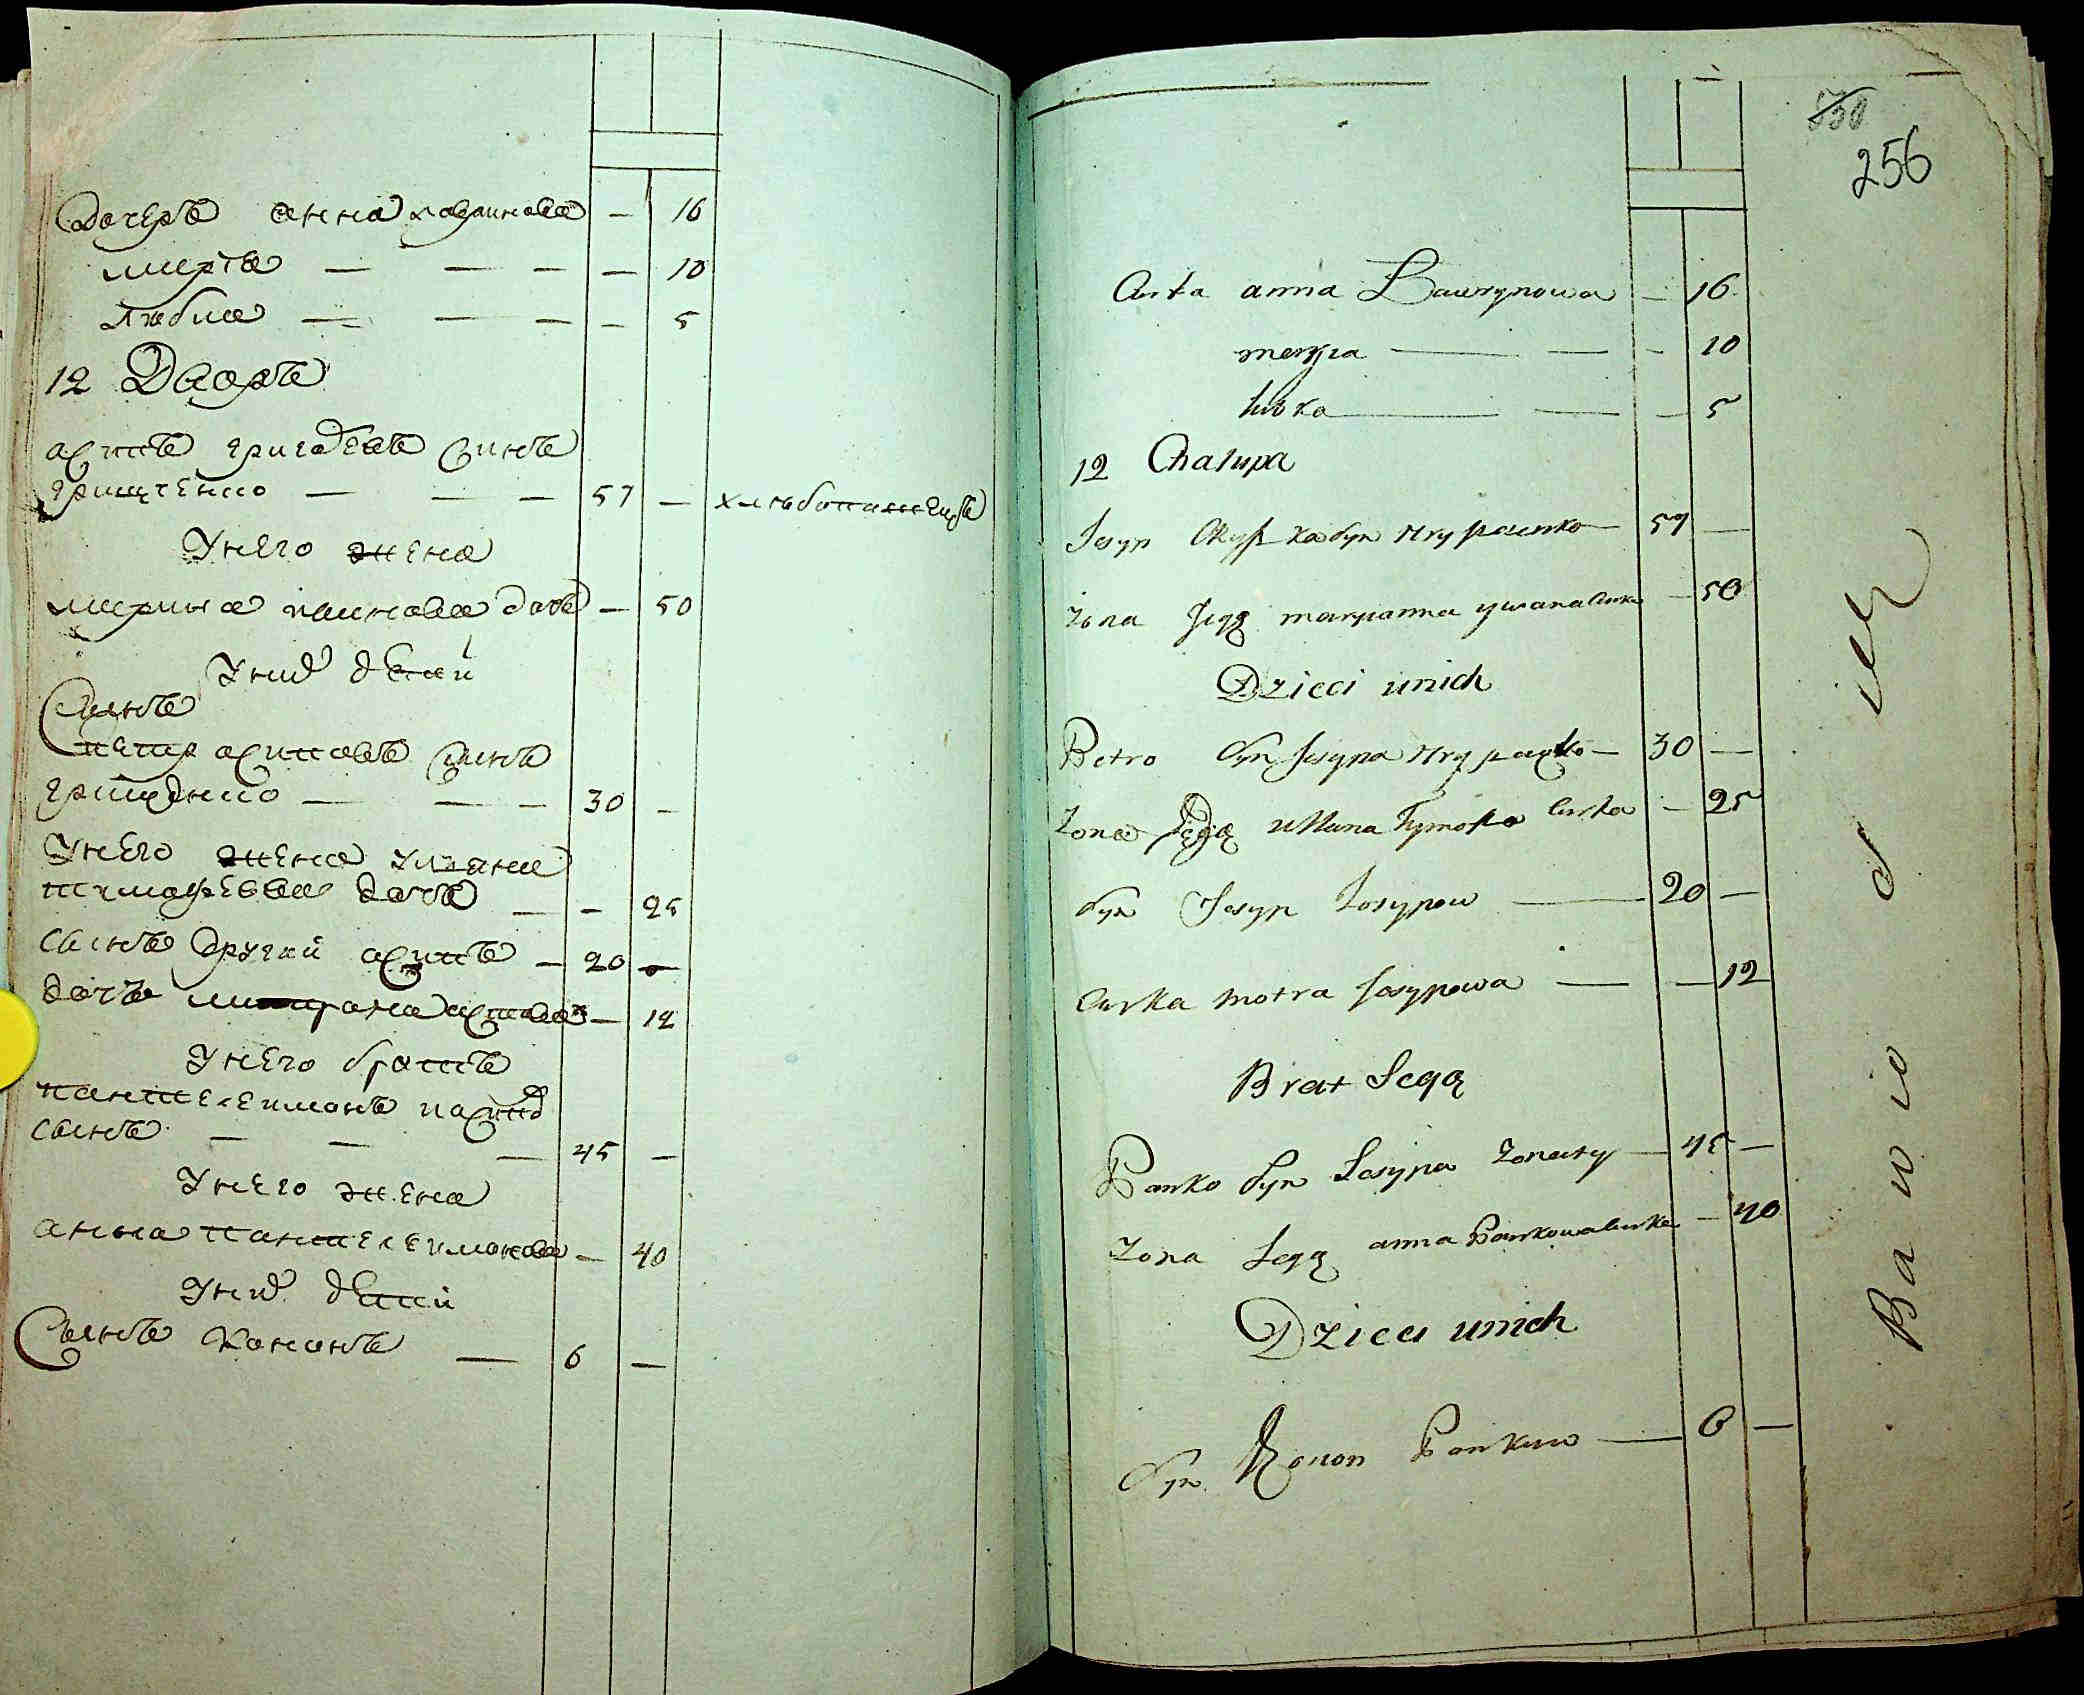 Дочеръ анна лавринова — 16
марiа — — — — 10
Любка — — — — 5
12 Дворъ
осипъ григорьевъ синъ
грищченко — — — 57 — хлѣбопашецъ
У него жена
марина иванова дочь — 50
У них детей
Синъ
петр осиповъ синъ
грищенко — — — 30 —
У него жена ульяна
тимофеева дочь — — 25
сынъ другий осипъ — 20 —
дочь осипова — 12
У него братъ
пантелеимонъ иосипов
сынъ — — — 45 —
У него жена
анна пантелеимонова — 40
У них детей
Сынъ Кононъ — 6 —
530
256
Curka anna Lawrynowa — 16
maryia — — — 10
lubka — — — 5
12 Chalupa
Josyp syn Hryszczenko 57 —
Zona Jego maryanna ywana Curka — 50
Dzieci unich
Petro Syn Josypa Hryszczenko — 30 —
Zona Jego Ullana Tymosza Curka — 25
Syn Josyp Josypow — 20 —
Curka motra Josypowa — — 12
Brat Jego
Panko Syn Josypa Zonaty — 45 —
Zona Jego anna Pankowa Curka — 40
Dzieci unich
Syn Konon Pankuw — 6 —